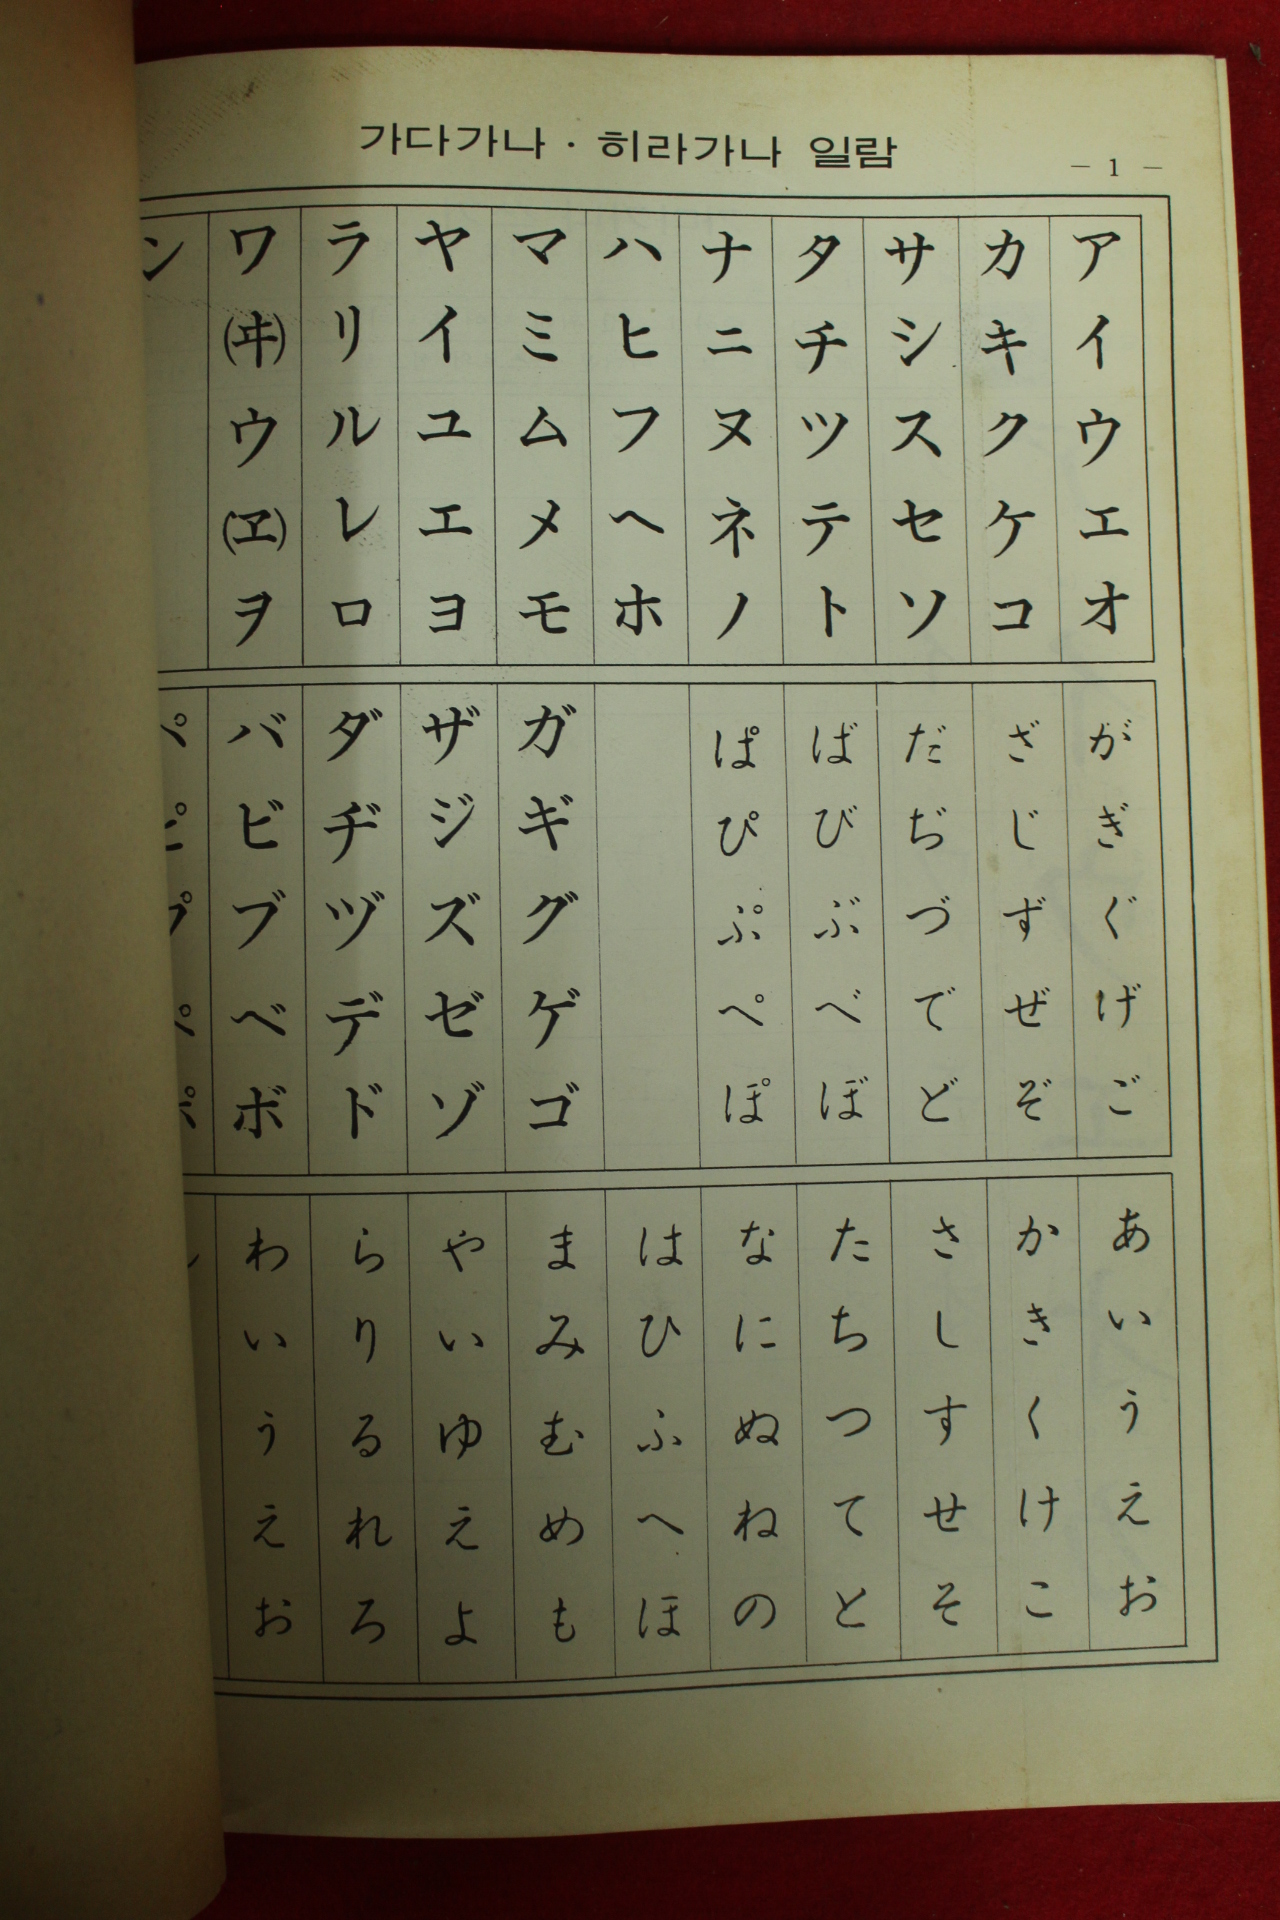 가다가나 · 히라가나 일람
— 1 —
アイウエオ
カキクケコ
サシスセソ
タチツテト
ナニヌネノ
ハヒフヘホ
マミムメモ
ヤイユエヨ
ラリルレロ
ワ(ヰ)ウ(ヱ)ヲ
ン
がぎぐげご
ざじずぜぞ
だぢづでど
ばびぶべぼ
ぱぴぷぺぽ
ガギグゲゴ
ザジズゼゾ
ダヂヅデド
バビブベボ
パピプペポ
あいうえお
かきくけこ
さしすせそ
たちつてと
なにぬねの
はひふへほ
まみむめも
やいゆえよ
らりるれろ
わいうえお